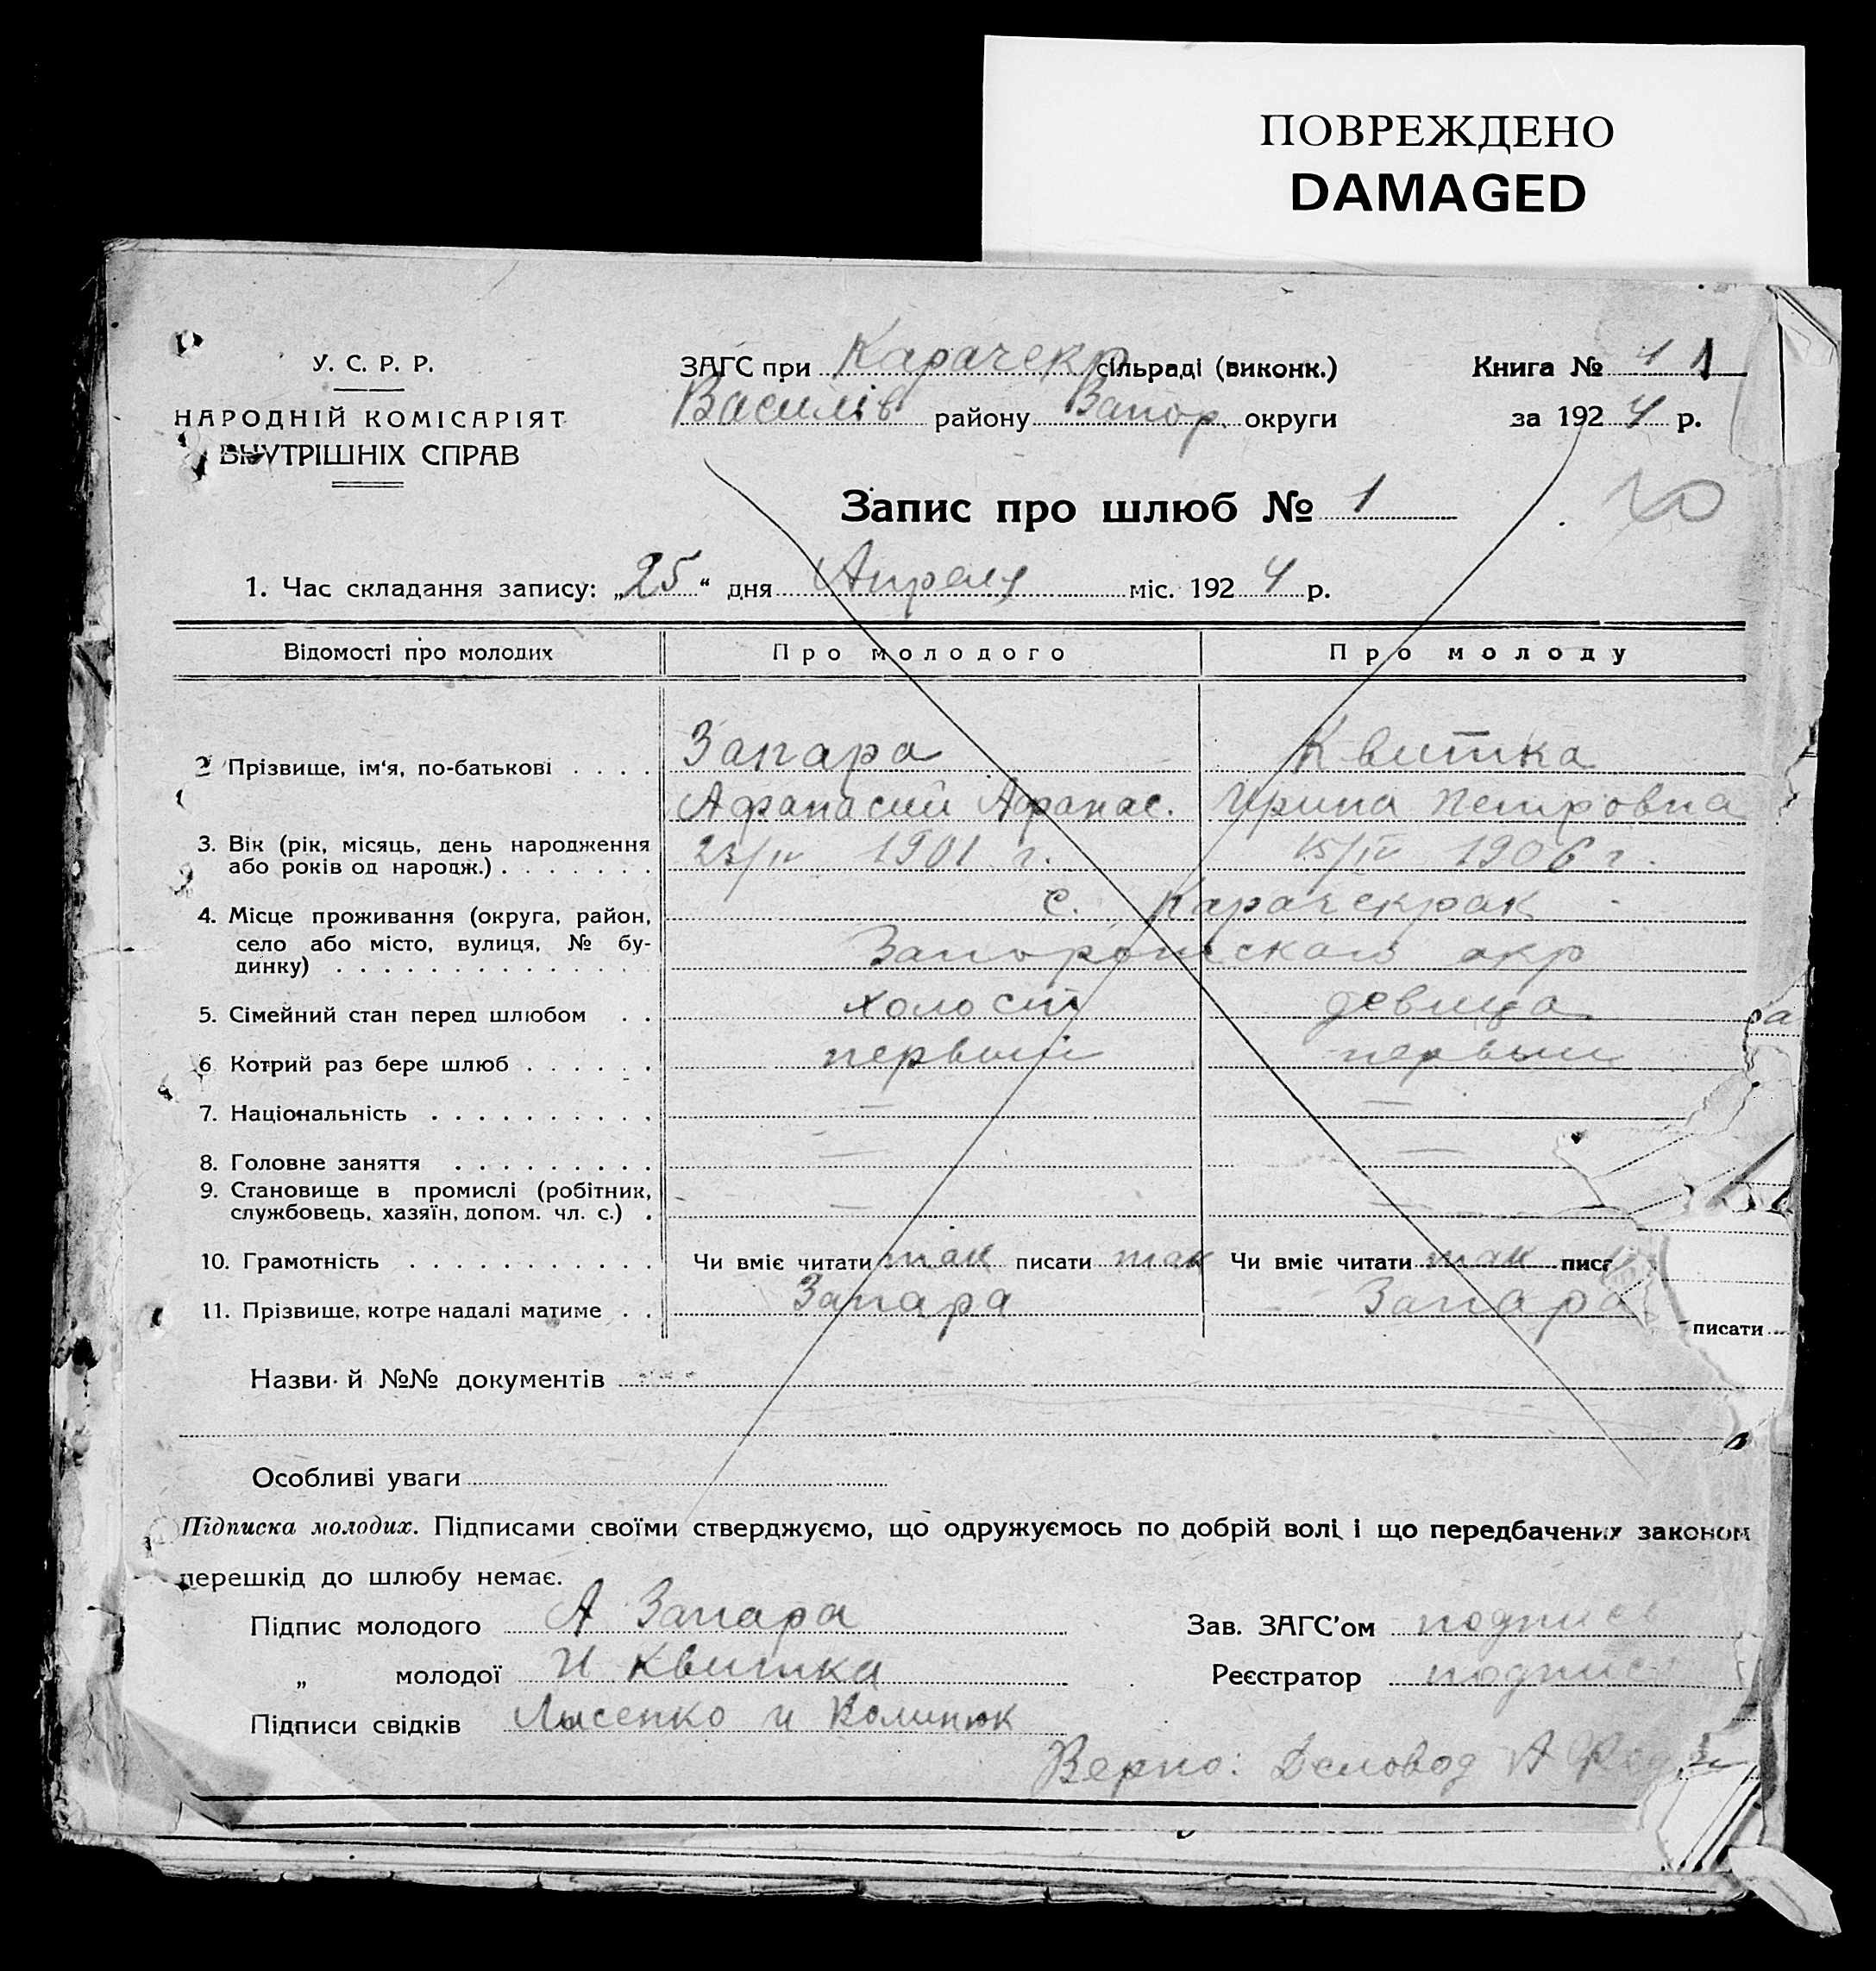 ПОВРЕЖДЕНО
DAMAGED
У. С. Р. Р.
НАРОДНІЙ КОМІСАРІЯТ
ВНУТРІШНІХ СПРАВ
ЗАГС при Карачекр сільраді (виконк.)
Василів району Запор. округи
Книга № 1
за 1924 р.
Запис про шлюб № 1
1. Час складання запису: „25“ дня Апреля міс. 1924 р.
Відомості про молодих Про молодого Про молоду
2 Прізвище, ім‘я, по-батькові . . . . Запара Квитка
Афанасий Афанас. Ирина Петровна
3. Вік (рік, місяць, день народження
або років од народж.) . . . . . . . 23/IV 1901 г. 15/IV 1906 г.
4. Місце проживання (округа, район, с. Карачекрак
село або місто, вулиця, № бу-
динку) . . . . . . . . . . . . . . Запорожскаго окр
5. Сімейний стан перед шлюбом . . холост девица
6 Котрий раз бере шлюб . . . . . . первый первый
7. Національність . . . . . . . . . . — —
8. Головне заняття . . . . . . . . . — —
9. Становище в промислі (робітник,
службовець, хазяїн, допом. чл. с.) . — —
10. Грамотність . . . . . . . . . . . Чи вміє читати так писати так Чи вміє читати так писа
11. Прізвище, котре надалі матиме . . Запара Запара
писати
Назви й №№ документів
Особливі уваги
Підписка молодих. Підписами своїми стверджуємо, що одружуємось по добрій волі і що передбачених законом
перешкід до шлюбу немає.
Підпис молодого А Запара
Зав. ЗАГС'ом подпись
„ молодої И Квитка
Реєстратор подпись
Підписи свідків Лысенко и
Верно: Деловод А